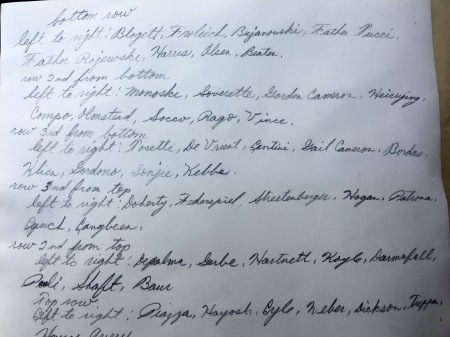 bottom row
left to right: Blogett, Froleich, Bujanouski, Father Pucci,
Father Rojewski, Harris, Olsen, Beaton.
row 2nd from bottom
left to right: Monoski, Soverette, Gordon Cameron,
Compo, Olmstad, Socco, Rago, Vince.
row 3rd from bottom
left to right: Rosette, De Vrient, Gentini, Gail Cameron, Bordas,
Klien, Gordono, Sonjie, Kebbe.
row 3nd from top
left to right: Doherty, Federspiel, Streetenberger, Hogan, Patrona,
Lynch, Langbean,
row 2nd from top
left to right: Depalma, Gerbe, Hartnett, Kayle, Darmafall,
Shaft, Baur
Top row
left to right: Piazza, Hayosh, Cyle, Weber, Dickson,